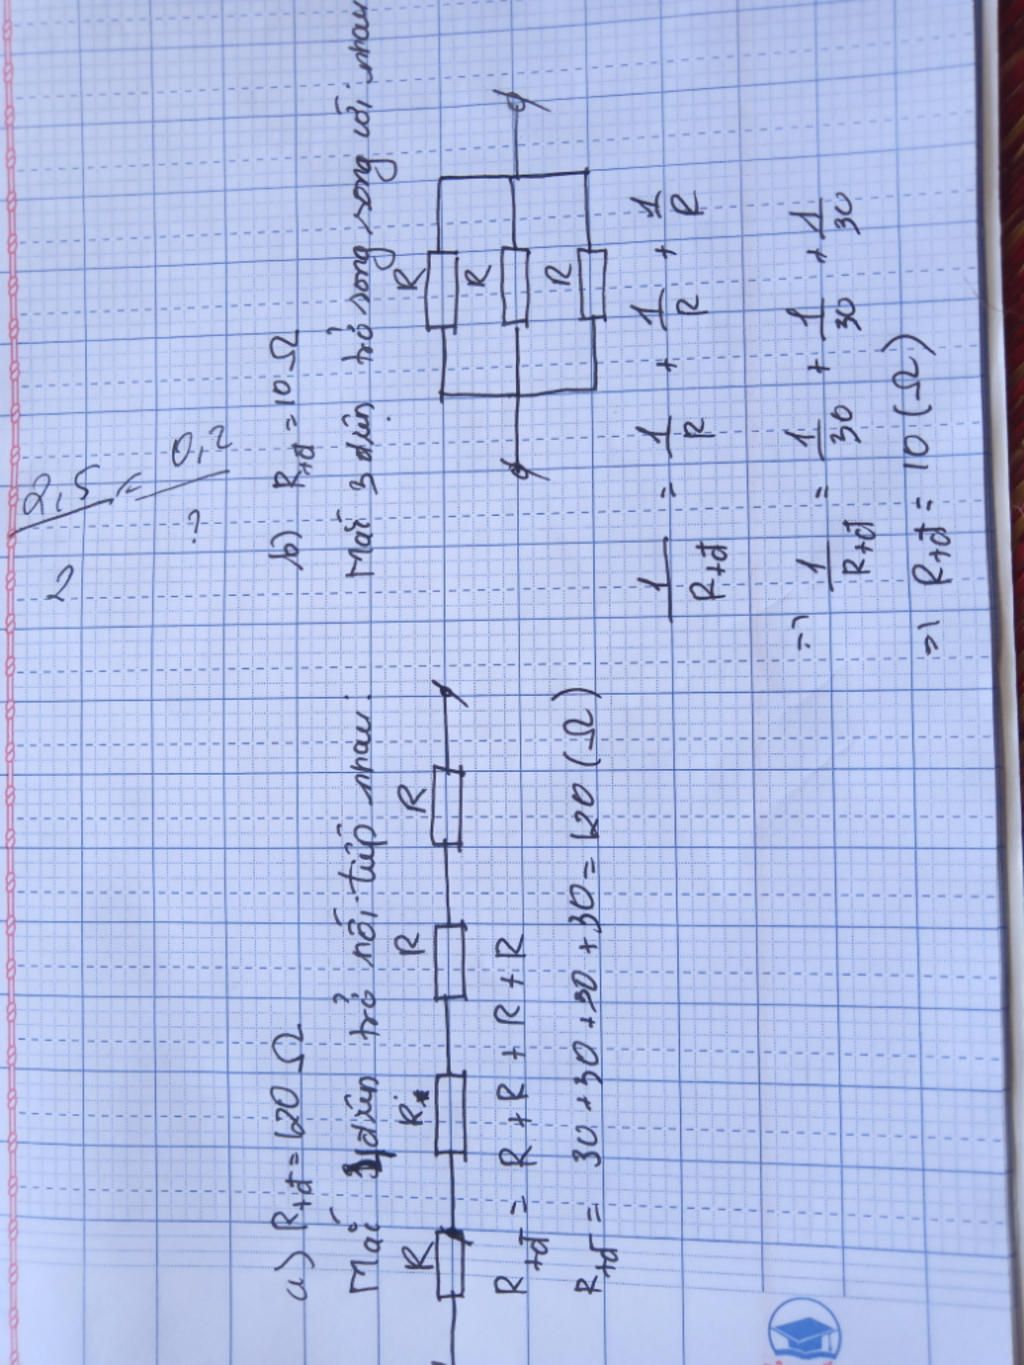 2,5 / 2 = 0,2 / ?
a) Rtđ = 120 Ω
Mắc 4 điện trở nối tiếp nhau.
R R R R
Rtđ = R + R + R + R
Rtđ = 30 + 30 + 30 + 30 = 120 (Ω)
b) Rtđ = 10 Ω
Mắc 3 điện trở song song với nhau
R
R
R
1/Rtđ = 1/R + 1/R + 1/R
=> 1/Rtđ = 1/30 + 1/30 + 1/30
=> Rtđ = 10 (Ω)